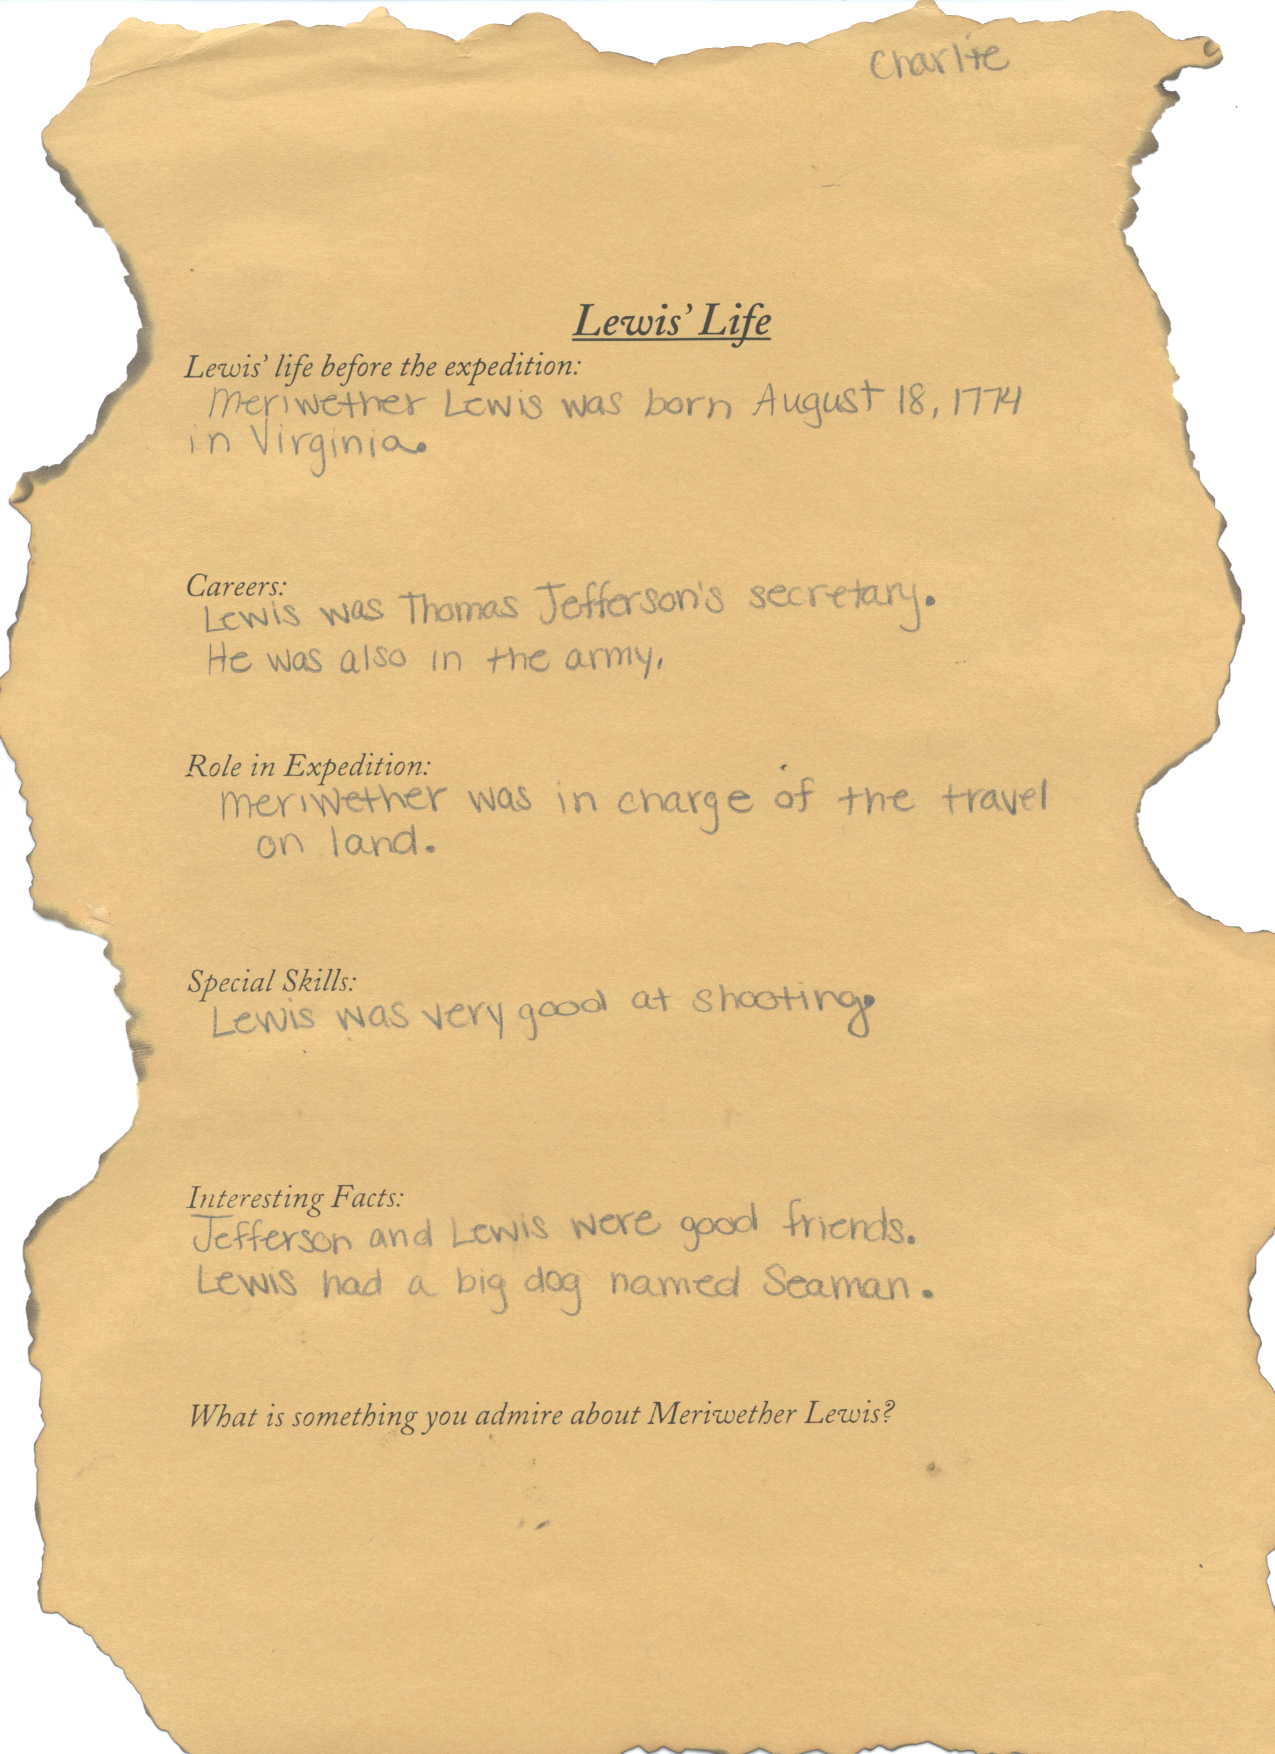 Charlie
Lewis' Life
Lewis' life before the expedition:
Meriwether Lewis was born August 18, 1774
in Virginia.
Careers:
Lewis was Thomas Jefferson's secretary.
He was also in the army.
Role in Expedition:
Meriwether was in charge of the travel
on land.
Special Skills:
Lewis was very good at shooting.
Interesting Facts:
Jefferson and Lewis were good friends.
Lewis had a big dog named Seaman.
What is something you admire about Meriwether Lewis?